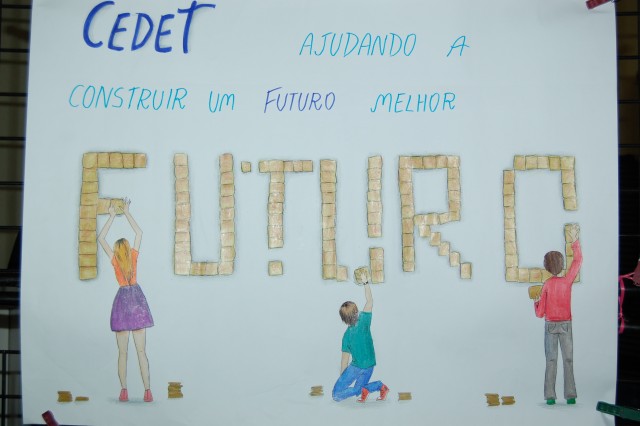 CEDET AJUDANDO A
CONSTRUIR UM FUTURO MELHOR
FUTURO